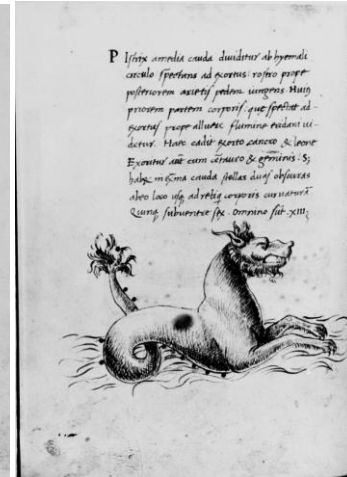 Pistrix amedia cauda dividitur ab hyemali
circulo spectans ad exortus: rostro prope
posteriorem arietis pedem iungens. Huius
priorem partem corporis: que spectat ad
exortus prope alluere flumine eridani vi-
detur. Haec cadit exorto cancro & leone
Exoritur aut cum & geminis. S;
habet cauda stellas duas obscuras
abeo loco usq; ad reliq corporis curvaturā
Quinq; subventre sex. Omnino sūt .xiii;